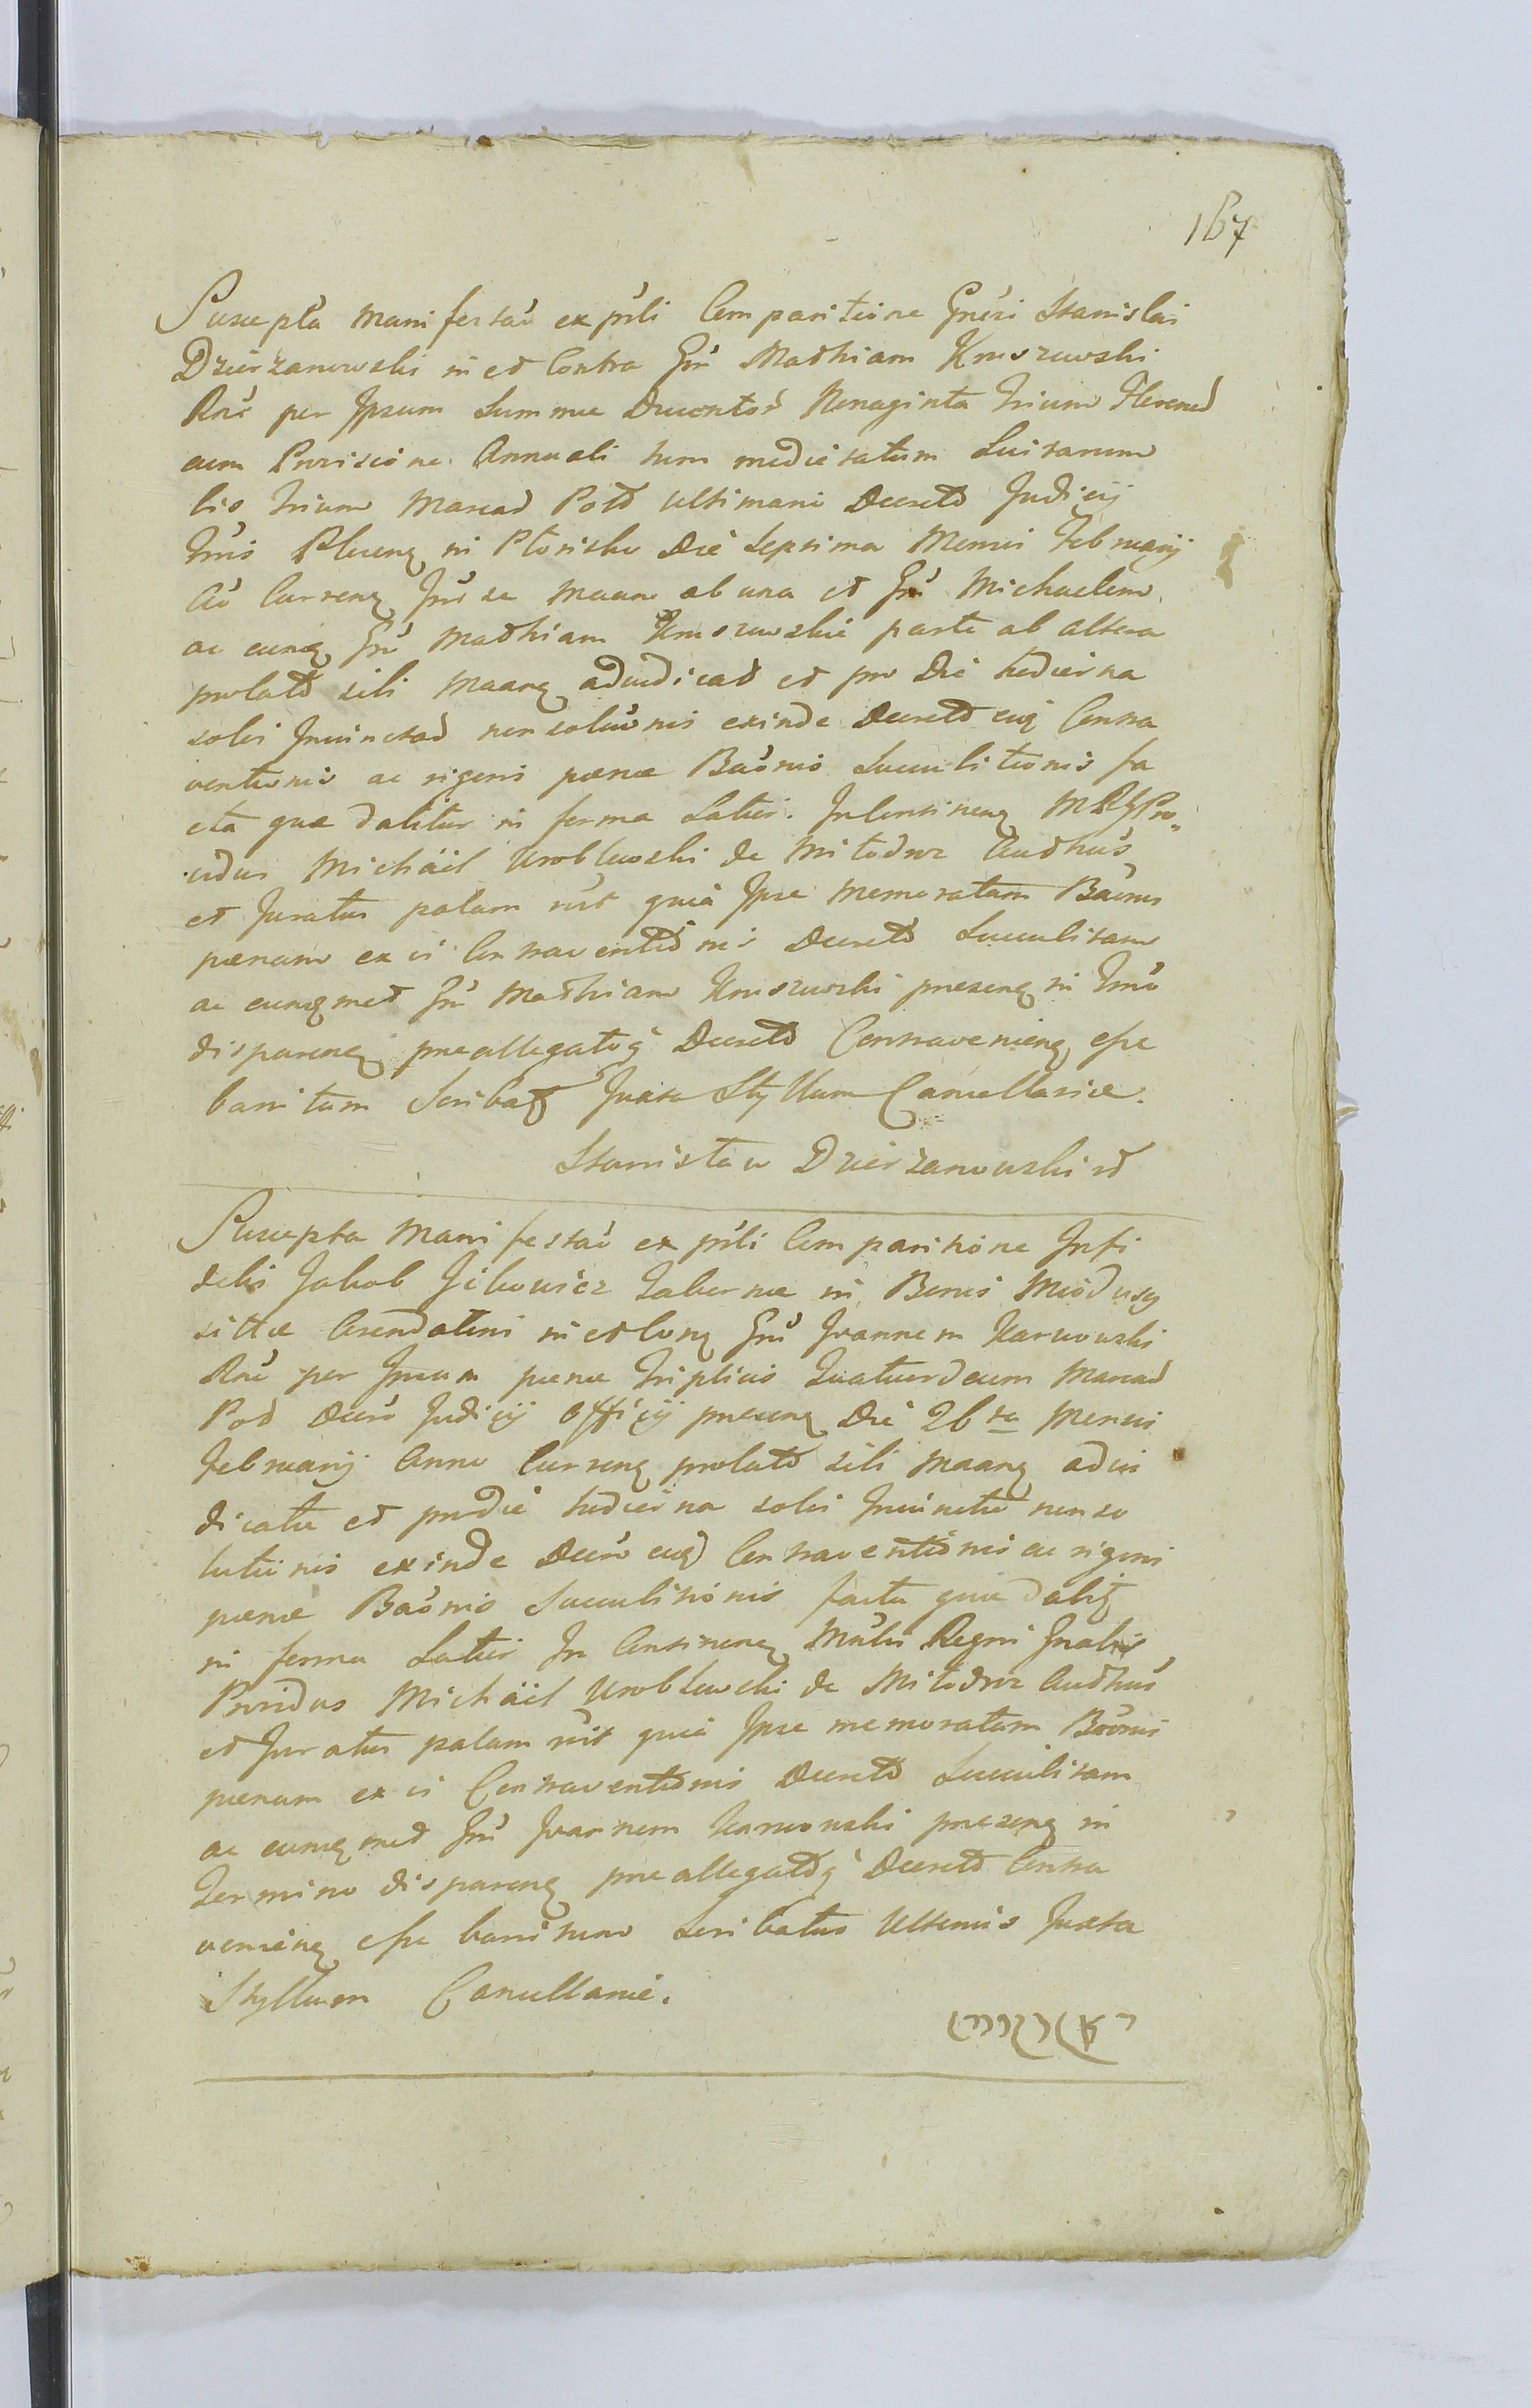 167
Suscepta Manifestaõ ex pñli Comparitione Gñrsi Stanislai
Dzierzanowski in et Contra Gñ Mathiam Kruszewski
Rñe per Ipsum Summae Ducentoŕ Nonaginta Trium Florenoꝝ
cum Provisione Annuali tum medietatum Luitarum
lis Trium Marcaꝝ Polł ultimarie Decreto Judicij
Tris Pluenꝗ in Płonisko Die Septima Mensis Februarij
Aõ Currenꝗ Inſ se Maam ab una et Gñ Michaelem
ac eunꝗ Gñ Mathiam Kruszewskie parte ab altera
prolato sibi Maanꝗ adiudicaꝝ et pro Die hodierna
solvi Iniunctaꝝ non soluõnis exinde Decreto eiꝗ Contra
ventionis ac rigori poenae Baõnis Succubitionis fa
cta quae dabitur in forma Latiori. In Continenꝗ M R G Pro„
vidus Michäel Wroblewski de Mitodroz Authũs
et Juratus palam rĩt quia Ipse Memoratam Baõnis
poenam ex vi Contraventiõnis Decreto Succubitam
ac eunꝗmet Gñ Mathiam Kruszewski presenꝗ in Tñũ
disparenꝗ preallegatoꝗ Decreto Contravenienꝗ esse
banitum Scribaꝗ Juxta Styllum Cancellariae.
Stanisław Dzierzanowski
Suscepta Manifestaõ ex pñli Comparitione Infi
delis Jakob Jckowicz Tabernae in Bonis Miodusy
sittae Arendatoris in et Conꝗ Gñ Joannem Karwowski
Rñe per Ipsum poenae Triplicis Quatuordecim Marcaꝝ
Poꝝ Decr̃o Judicij Officij presenꝗ Die 26ta Mensis
Februarij Anno Currenꝗ prolato sibi Maanꝗ adiu
dicatae et pro die hodierna solvi Iniunctae non so
lutionis exinde Decr̃o euꝗ Contraventiõnis ac rigori
poenae Baõnis Succubitiõnis facta quae dabiꝗ
in forma Latiori In Continenꝗ Mñlis Regni Gñalis
Providus Michäel Wroblewski de Mitodroz Authũs
et Juratus palam rĩt quia Ipse memoratam Baõnis
poenam ex vi Contraventiõnis Decreto Succubitam
ac eunꝗmet Gñ Joannem Karwowski presenꝗ in
Termino disparenꝗ preallegatoꝗ Decreto Contra
venienꝗ esse banitum Scribatus Ulterius Juxta
Styllum Cancellariae.